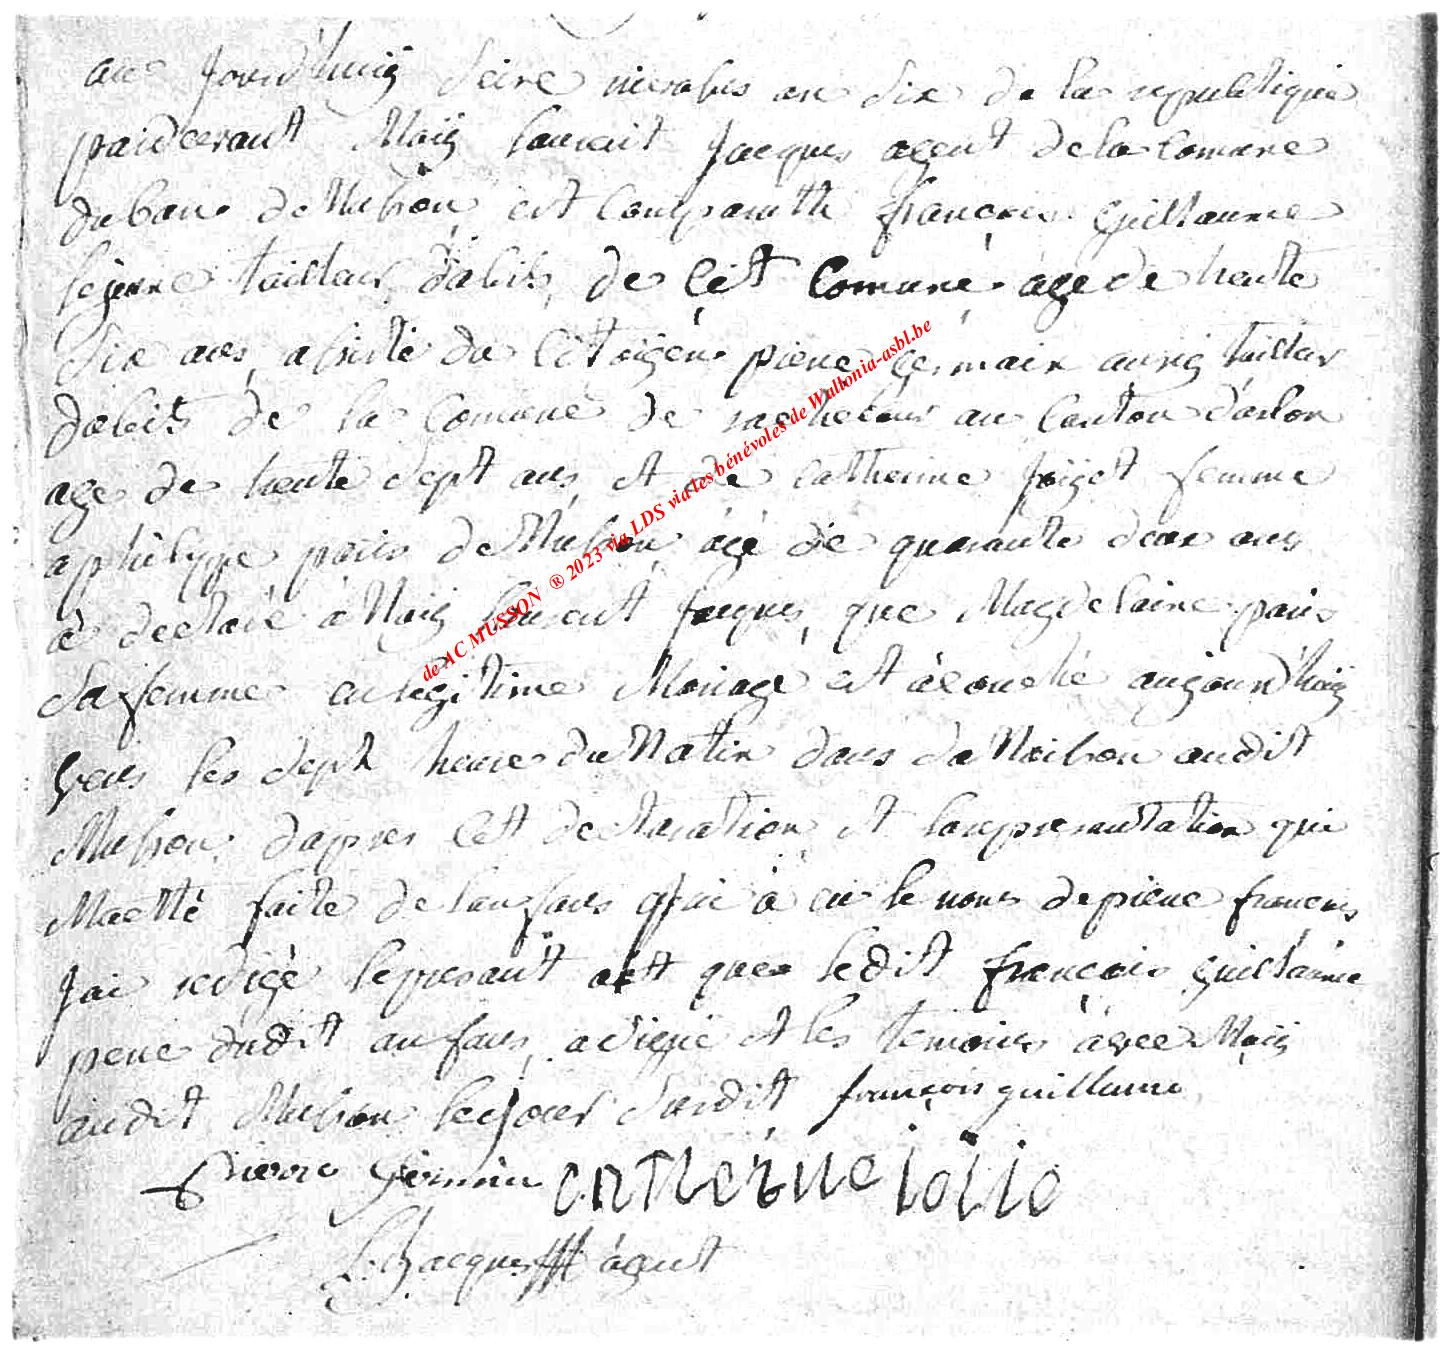 au Jourd'huiÿ seize nivosbes an dix de la republiquie
pardevant Moiÿ laurent Jacques agent de la Comune
duban de Musson est Comparutte françois guillaume
lejeune tailleur dabits de Cêt Comune age de trente
six ans assisté du Citoiÿen piere germain aussiÿ tailleur
dabits de la Comune de rachecour au Canton darlon
age de trente sept ans et de Catherine femme
a philippe paris de Musson âgé de quarante deux ans
à declaré à Moiÿ laurent Jacques que Magdelaine paris
sa femme en legitime Mariage est àcouché aujourd'huiÿ
vers les sept heure du Matin dans sa Maison audit
Musson dapres Cett declaration et la represantation qui
Maetté faite de lanfans qui à eu le nom de piere francois
Jai redigé lepresant actt que ledit françois guillaume
pere dudit anfans a signé et les temoins avec Moiÿ
audit Musson lejour susdit françois guillaume
Pierre Germain CATHERINE iolie
L Jacques agent
de AC MUSSON ® 2023 via LDS via les bénévoles de Wallonia-asbl.be